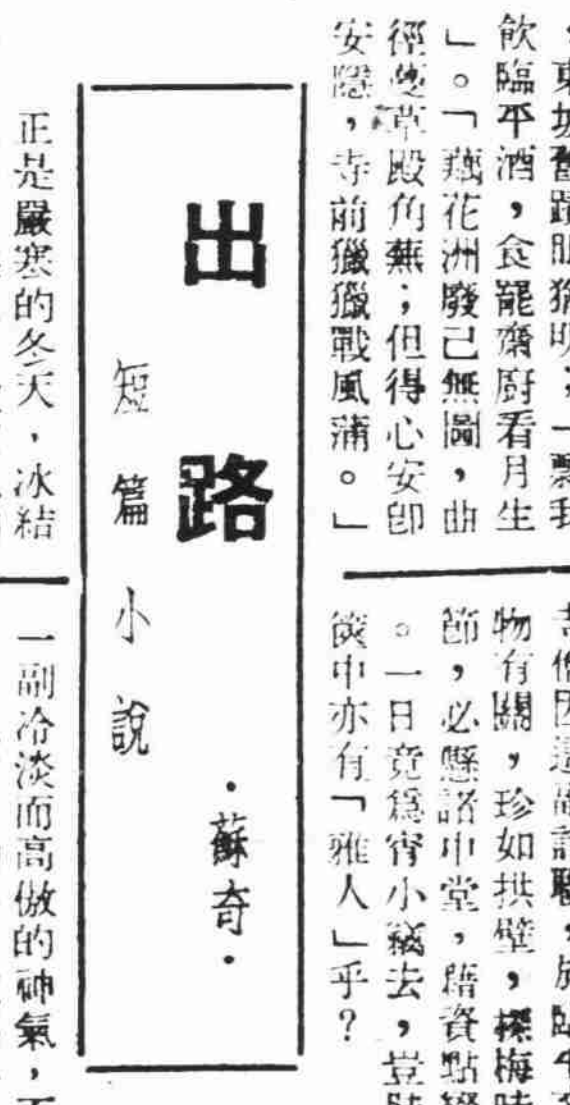 飲臨平酒，食罷齋廚看月生
」。「藕花洲廢已無圖，曲
徑荒草殿角蕪；但得心安卽
安隱，寺前獵獵戰風蒲。」
物有關，珍如拱璧，探梅時
節，必懸諸中堂，藉資點綴
。一日竟爲宵小竊去，豈
篋中亦有「雅人」乎？
出路
短篇小說
·蘇奇·
正是嚴寒的冬天，冰結
一副冷淡而高傲的神氣，